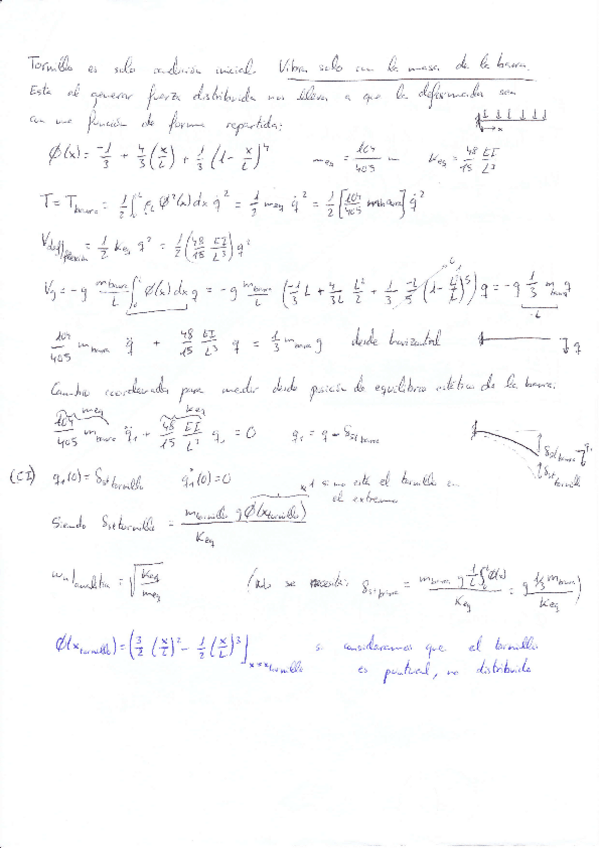 Tornillo es solo condición inicial. Vibra solo con la masa de la barra.
Esta al generar fuerza distribuida nos lleva a que la deformada sea
con una función de forma repartida:
Φ(x) = -1/3 + 4/3 (x/L) + 1/3 (1 - x/L)^4   m_eq = 104/405 m   k_eq = 48/15 EI/L^3
T = T_barra = 1/2 ∫_0^L ρ_L Φ²(x) dx q̇² = 1/2 m_eq q̇² = 1/2 [104/405 m_barra] q̇²
V_def flexión = 1/2 k_eq q² = 1/2 (48/15 EI/L^3) q²
V_g = -g m_barra/L ∫_0^L Φ(x) dx q = -g m_barra/L (-1/3 L + 4/3L L²/2 + 1/3 · -L/5 (1 - L/L)^5) q = -q 1/3 m_barra g
104/405 m_barra q̈ + 48/15 EI/L^3 q = 1/3 m_barra g   desde horizontal   q
Cambio coordenada para medir desde posición de equilibrio estático de la barra:
m_eq   k_eq
104/405 m_barra q̈_1 + 48/15 EI/L^3 q_1 = 0   q_1 = q - δ_st barra
δ_st barra   q_1
δ_st tornillo
(CI) q_1(0) = δ_st tornillo   q̇_1(0) = 0   ≠1 si no está el tornillo en el extremo
Siendo δ_st tornillo = m_tornillo g Φ(x_tornillo) / k_eq
w_n|analítica = √(k_eq/m_eq)   (no se necesita: δ_st barra = m_barra g 1/L ∫_0^L Φ(x) / k_eq = g 1/3 m_barra / k_eq)
Φ(x_tornillo) = (3/2 (x/L)² - 1/2 (x/L)³]_x=x_tornillo   si consideramos que el tornillo
es puntual, no distribuido